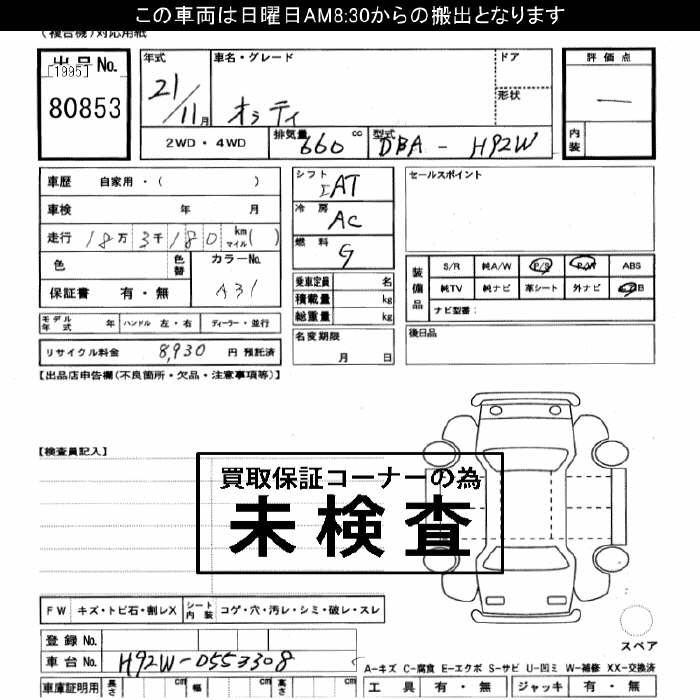 この車両は日曜日AM8:30からの搬出となります
(複合機)対応用紙
出品No.
[1995]
80853
年式
21/11月
車名・グレード
オッティ
ドア
形状
評価点
一
内装
2WD・4WD
排気量 660 cc
型式 DBA-H92W
車歴 自家用・( )
車検 年 月
走行 18万3千180 km マイル( )
色
色替
カラーNo.
A31
保証書 有・無
シフト
IAT
冷房
AC
燃料
G
乗車定員 名
積載量 kg
総重量 kg
セールスポイント
装備品
S/R 純A/W P/S P/W ABS
純TV 純ナビ 革シート 外ナビ エアB
ナビ型番:
モデル年式 年 ハンドル 左・右 ディーラー・並行
リサイクル料金 8,930 円 預託済
名変期限
月 日
後日品
【出品店申告欄(不良箇所・欠品・注意事項等)】
【検査員記入】
買取保証コーナーの為
未検査
FW キズ・トビ石・割レX
シート内装 コゲ・穴・汚レ・シミ・破レ・スレ
登録No.
車台No. H92W-0553308
スペア
A-キズ C-腐食 E-エクボ S-サビ U-凹ミ W-補修 XX-交換済
車庫証明用 長さ cm 幅 cm 高さ cm
工具 有・無 ジャッキ 有・無